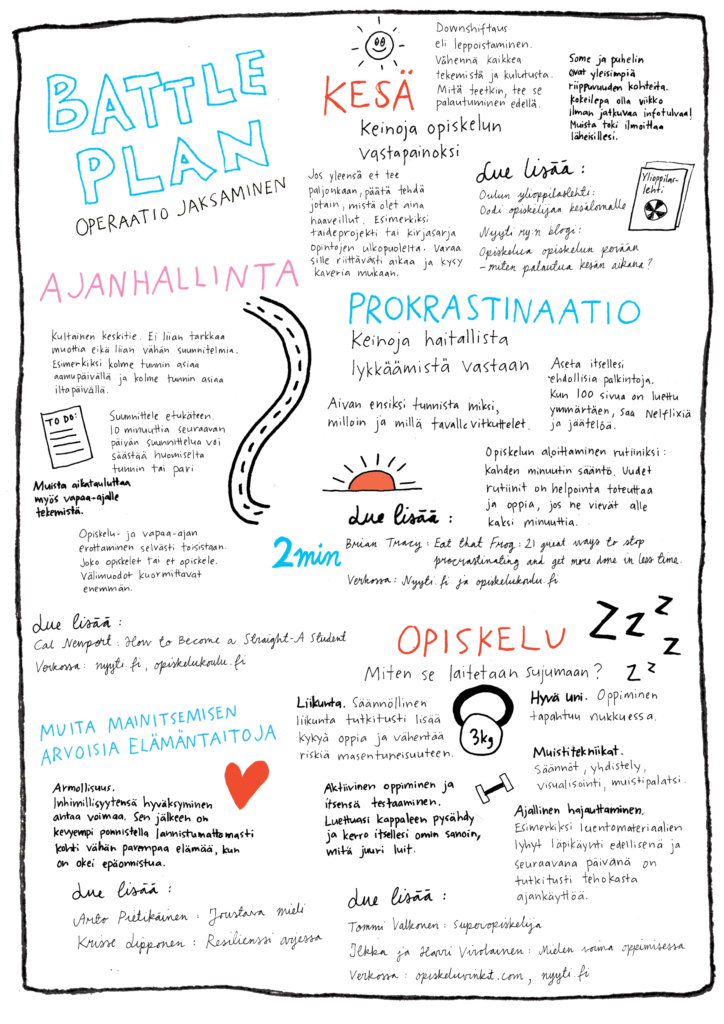 BATTLE
PLAN
OPERAATIO JAKSAMINEN
KESÄ
Keinoja opiskelun
vastapainoksi
Downshiftaus
eli leppoistaminen.
Vähennä kaikkea
tekemistä ja kulutusta.
Mitä teetkin, tee se
palautuminen edellä.
Some ja puhelin
ovat yleisimpiä
riippuvuuden kohteita.
Kokeilepa olla viikko
ilman jatkuvaa infotulvaa!
Muista toki ilmoittaa
läheisillesi.
Jos yleensä et tee
paljonkaan, päätä tehdä
jotain, mistä olet aina
haaveillut. Esimerkiksi
taideprojekti tai kirjasarja
opintojen ulkopuolelta. Varaa
sille riittävästi aikaa ja kysy
kaveria mukaan.
Lue lisää:
Oulun ylioppilaslehti:
Oodi opiskelijan kesälomalle
Nyyti ry:n blogi:
Opiskelua opiskelun perään
– miten palautua kesän aikana?
Ylioppilas-
lehti
AJANHALLINTA
Kultainen keskitie. Ei liian tarkkaa
muottia eikä liian vähän suunnitelmia.
Esimerkiksi kolme tunnin asiaa
aamupäivällä ja kolme tunnin asiaa
iltapäivällä.
TO DO:
Suunnittele etukäteen.
10 minuuttia seuraavan
päivän suunnittelua voi
säästää huomiselta
tunnin tai pari
Muista aikatauluttaa
myös vapaa-ajalle
tekemistä.
Opiskelu- ja vapaa-ajan
erottaminen selvästi toisistaan.
Joko opiskelet tai et opiskele.
Välimuodot kuormittavat
enemmän.
Lue lisää:
Cal Newport: How to Become a Straight-A Student
Verkossa: nyyti.fi, opiskelukoulu.fi
PROKRASTINAATIO
Keinoja haitallista
lykkäämistä vastaan
Aivan ensiksi tunnista miksi,
milloin ja millä tavalla vitkuttelet.
Aseta itsellesi
ehdollisia palkintoja.
Kun 100 sivua on luettu
ymmärtäen, saa Netflixiä
ja jäätelöä.
Opiskelun aloittaminen rutiiniksi:
kahden minuutin sääntö. Uudet
rutiinit on helpointa toteuttaa
ja oppia, jos ne vievät alle
kaksi minuuttia.
2min
Lue lisää:
Brian Tracy: Eat that Frog: 21 great ways to stop
procrastinating and get more done in less time.
Verkossa: Nyyti.fi ja opiskelukoulu.fi
OPISKELU
Miten se laitetaan sujumaan?
ZZZZ
ZZ
Liikunta. Säännöllinen
liikunta tutkitusti lisää
kykyä oppia ja vähentää
riskiä masentuneisuuteen.
3kg
Hyvä uni. Oppiminen
tapahtuu nukkuessa.
Muistitekniikat.
Säännöt, yhdistely,
visualisointi, muistipalatsi.
Aktiivinen oppiminen ja
itsensä testaaminen.
Luettuasi kappaleen pysähdy
ja kerro itsellesi omin sanoin,
mitä juuri luit.
Ajallinen hajauttaminen.
Esimerkiksi luentomateriaalien
lyhyt läpikäynti edellisenä ja
seuraavana päivänä on
tutkitusti tehokasta
ajankäyttöä.
Lue lisää:
Tommi Valkonen: Superopiskelija
Ilkka ja Harri Virolainen: Mielen voima oppimisessa
Verkossa: opiskeluvinkit.com, nyyti.fi
MUITA MAINITSEMISEN
ARVOISIA ELÄMÄNTAITOJA
Armollisuus.
Inhimillisyytensä hyväksyminen
antaa voimaa. Sen jälkeen on
kevyempi ponnistella lannistumattomasti
kohti vähän parempaa elämää, kun
on okei epäonnistua.
Lue lisää:
Arto Pietikäinen: Joustava mieli
Krisse Lipponen: Resilienssi arjessa